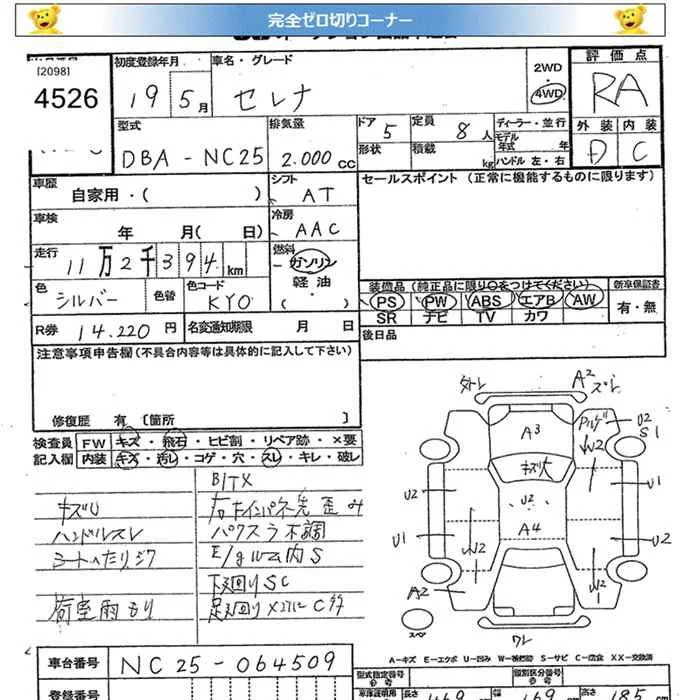 完全ゼロ切りコーナー
[2098]
4526
初度登録年月
19 5月
車名・グレード
セレナ
2WD
4WD
評価点
RA
外装 内装
D C
型式
DBA-NC25
排気量
2.000 CC
ドア 5
形状
定員 8人
積載 kg
ディーラー・並行
モデル年式 年
ハンドル 左・右
車歴
自家用・( )
シフト
AT
セールスポイント (正常に機能するものに限ります)
車検
年 月( 日)
冷房
AAC
走行
11万2千394 km
燃料
ガソリン
軽油
・( )
色
シルバー
色替
色コード
KY0
装備品
PS PW ABS エアB AW
SR ナビ TV カワ
新車保証書
有・無
R券 14.220 円
名変通知期限 月 日
後日品
注意事項申告欄 (不具合内容等は具体的に記入して下さい)
修復歴 有 〔箇所 〕
検査員記入欄
FW キズ・飛石・ヒビ割・リペア跡・×要
内装 キズ・汚レ・コゲ・穴・スレ・キレ・破レ
キズU
ハンドルスレ
シートへたりシワ
荷室雨もり
BITX
右インパネ先歪み
パワスラ不調
E/gルーム内S
下廻りSC
外レ
A2
スレ
A3
キズ大
U2
A4
U2
S1
W2
U2
U1
U1
U2
W2
W2
A2
スペア
ワレ
A-キズ E-エクボ U-凹み W-補修跡 S-サビ C-腐食 XX-交換済
車台番号
NC25-064509
登録番号
型式指定番号
類別区分番号
長さ 469 cm
幅 169 cm
高さ 185 cm